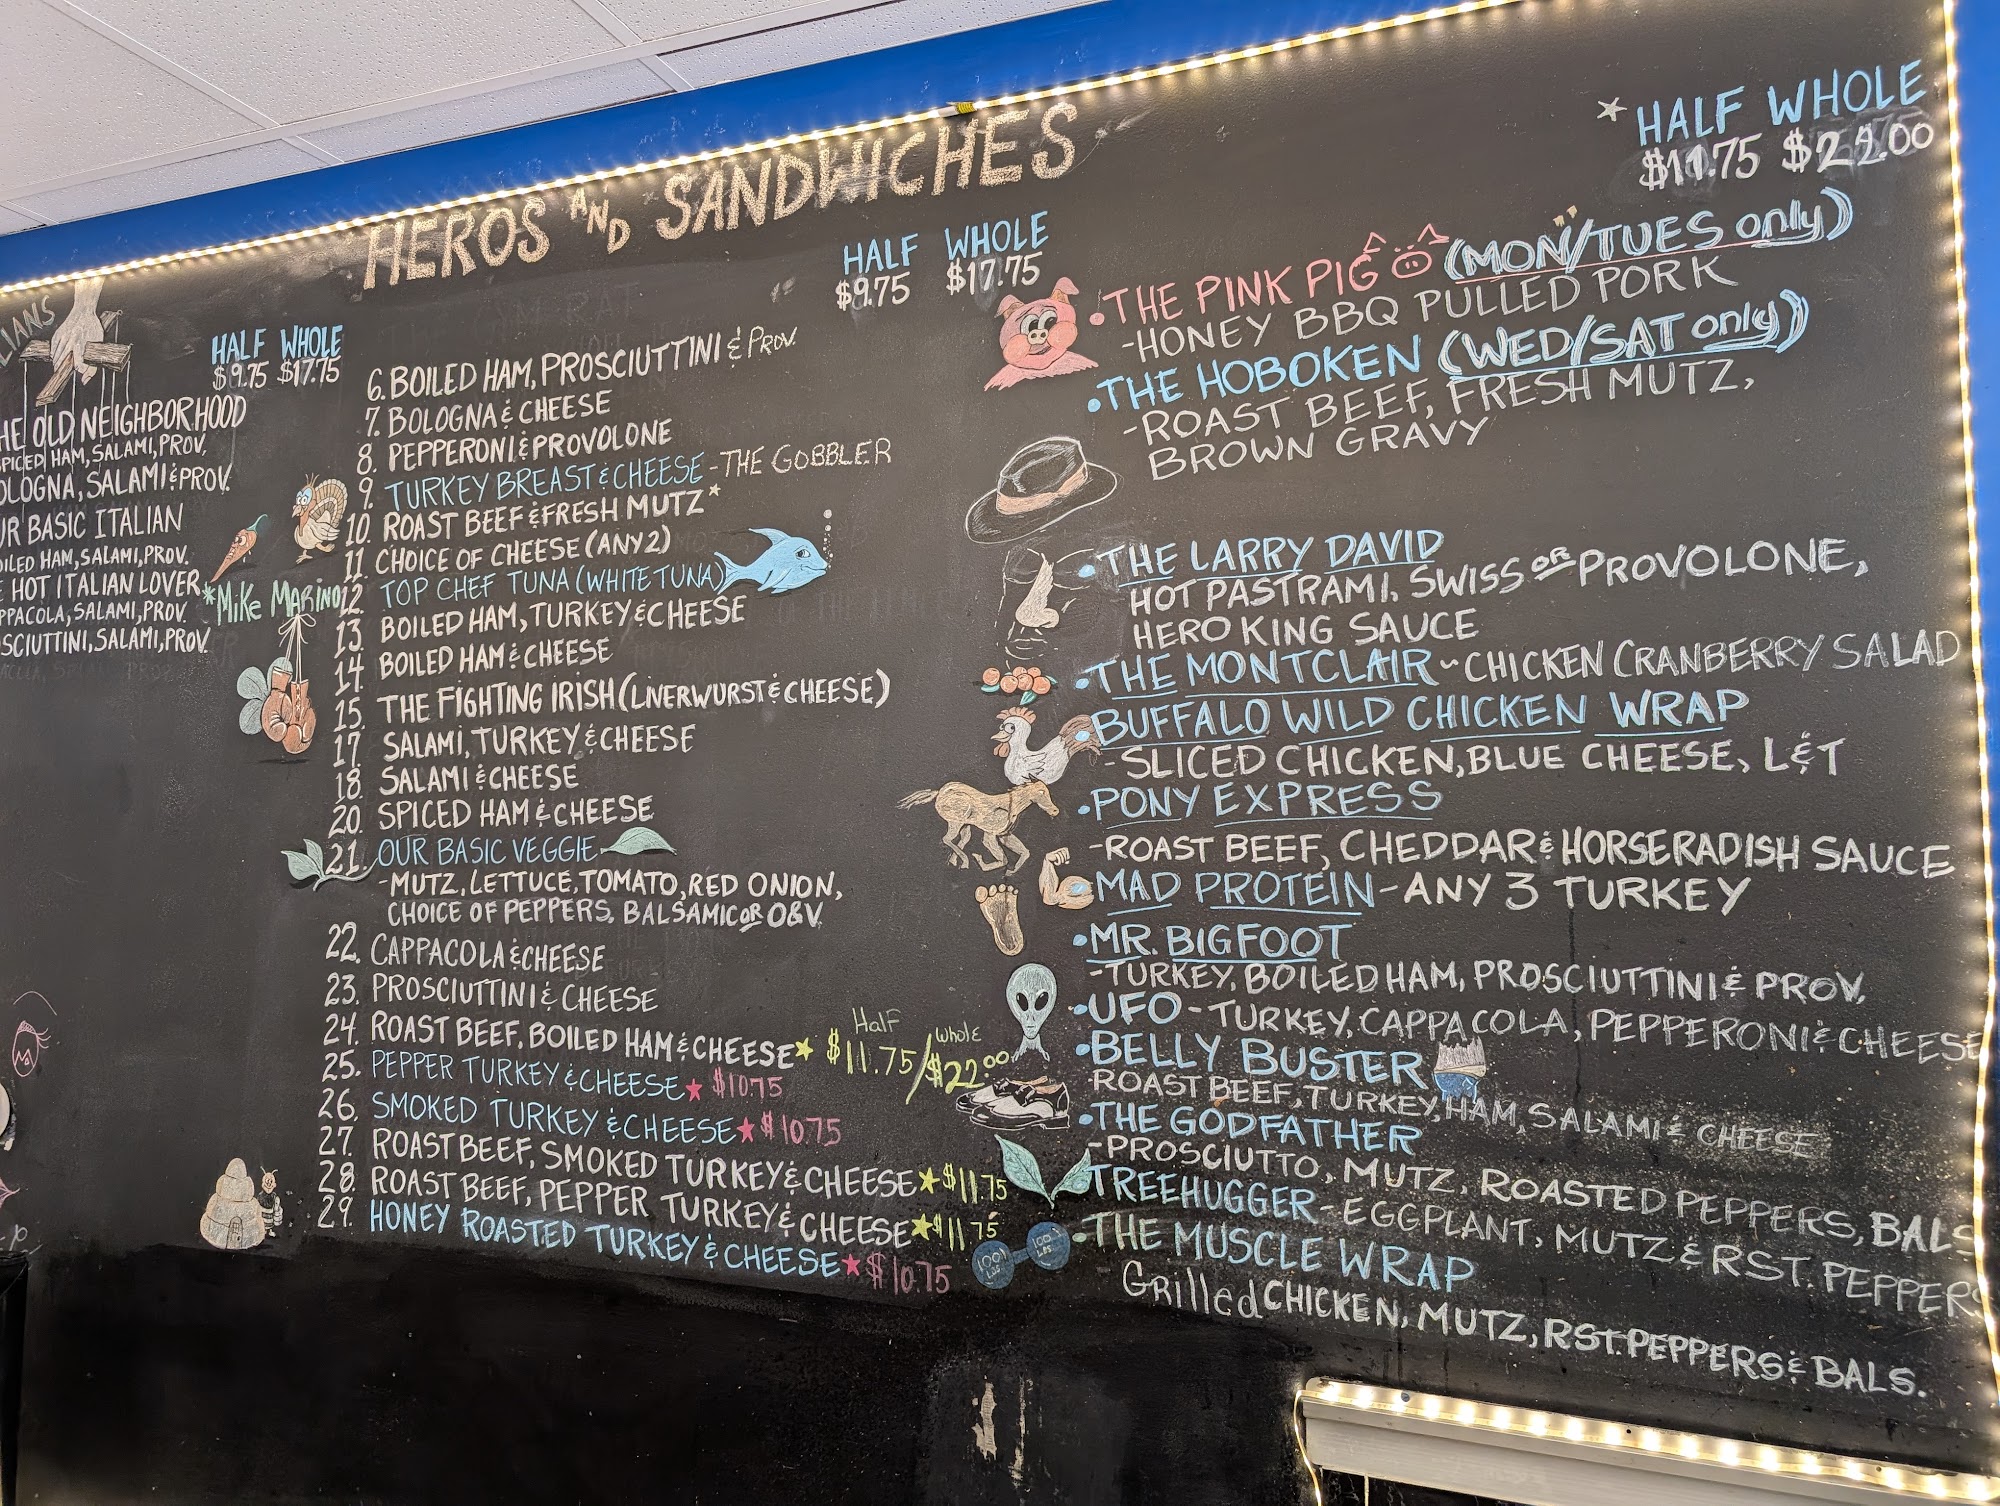 HEROS AND SANDWICHES
LIANS
HALF WHOLE
$9.75 $17.75
HE OLD NEIGHBORHOOD
PICED HAM, SALAMI, PROV.
OLOGNA, SALAMI & PROV.
UR BASIC ITALIAN
OILED HAM, SALAMI, PROV.
E HOT ITALIAN LOVER
PPACOLA, SALAMI, PROV.
OSCIUTTINI, SALAMI, PROV.
*MIKE MARINO
HALF WHOLE
$9.75 $17.75
6. BOILED HAM, PROSCIUTTINI & PROV.
7. BOLOGNA & CHEESE
8. PEPPERONI & PROVOLONE
9. TURKEY BREAST & CHEESE - THE GOBBLER
10. ROAST BEEF & FRESH MUTZ*
11. CHOICE OF CHEESE (ANY 2)
12. TOP CHEF TUNA (WHITE TUNA)
13. BOILED HAM, TURKEY & CHEESE
14. BOILED HAM & CHEESE
15. THE FIGHTING IRISH (LIVERWURST & CHEESE)
17. SALAMI, TURKEY & CHEESE
18. SALAMI & CHEESE
20. SPICED HAM & CHEESE
21. OUR BASIC VEGGIE
-MUTZ, LETTUCE, TOMATO, RED ONION,
CHOICE OF PEPPERS, BALSAMIC OR O&V.
22. CAPPACOLA & CHEESE
23. PROSCIUTTINI & CHEESE
24. ROAST BEEF, BOILED HAM & CHEESE★ Half $11.75/Whole $22.00
25. PEPPER TURKEY & CHEESE★ $10.75
26. SMOKED TURKEY & CHEESE★ $10.75
27. ROAST BEEF, SMOKED TURKEY & CHEESE★ $11.75
28. ROAST BEEF, PEPPER TURKEY & CHEESE★ $11.75
29. HONEY ROASTED TURKEY & CHEESE★ $10.75
* HALF WHOLE
$11.75 $22.00
• THE PINK PIG (MON/TUES only)
-HONEY BBQ PULLED PORK
• THE HOBOKEN (WED/SAT only)
-ROAST BEEF, FRESH MUTZ,
BROWN GRAVY
• THE LARRY DAVID
HOT PASTRAMI, SWISS OR PROVOLONE,
HERO KING SAUCE
• THE MONTCLAIR ~ CHICKEN CRANBERRY SALAD
BUFFALO WILD CHICKEN WRAP
-SLICED CHICKEN, BLUE CHEESE, L&T
• PONY EXPRESS
-ROAST BEEF, CHEDDAR & HORSERADISH SAUCE
MAD PROTEIN - ANY 3 TURKEY
• MR. BIGFOOT
-TURKEY, BOILED HAM, PROSCIUTTINI & PROV.
• UFO - TURKEY, CAPPACOLA, PEPPERONI & CHEESE
• BELLY BUSTER
ROAST BEEF, TURKEY, HAM, SALAMI & CHEESE
• THE GODFATHER
-PROSCIUTTO, MUTZ, ROASTED PEPPERS, BALS
TREEHUGGER - EGGPLANT, MUTZ & RST. PEPPERS
100 LBS 100 LBS
• THE MUSCLE WRAP
Grilled CHICKEN, MUTZ, RST. PEPPERS & BALS.